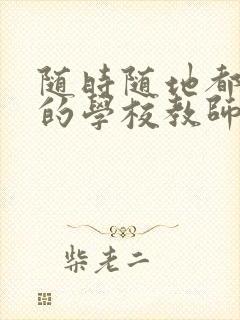 随時随地都
的學校教師
柴老二